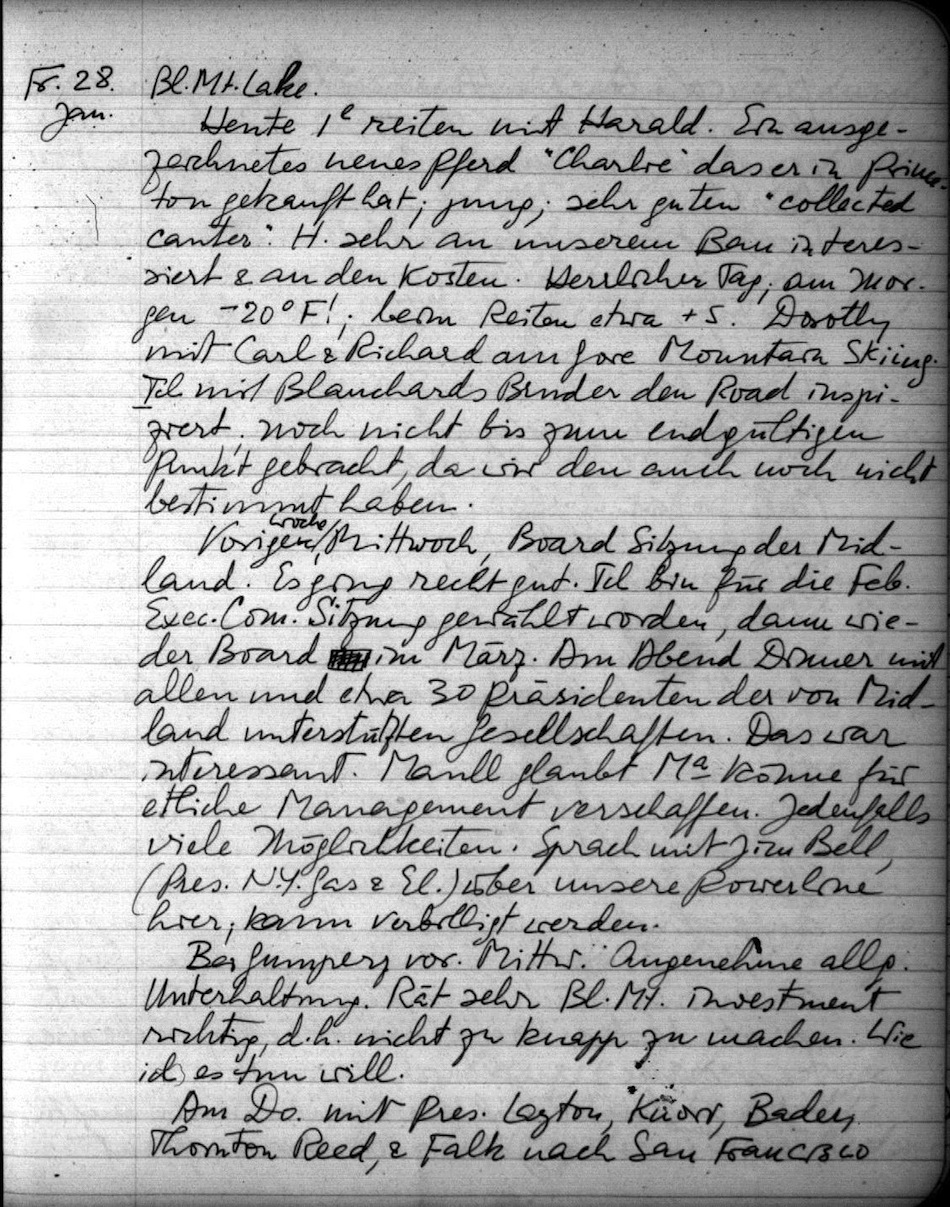 Fr. 28. Bl. Mt. Lake.
Jan.
Heute 1e reiten mit Harald. Ein ausge-
zeichnetes neues Pferd "Charlie" das er in Prince-
ton gekauft hat; jung; sehr guten "collected
canter". H. sehr an unserem Bau interes-
siert & an den Kosten. Herrlicher Tag; am Mor-
gen -20°F!; beim Reiten etwa +5. Dorothy
mit Carl & Richard am Gore Mountain Skiing.
Ich mit Blanchards Bruder den Road inspi-
ziert; noch nicht bis zum endgültigen
Punkt gebracht, da wir den auch noch nicht
bestimmt haben.
Vorigen Woche Mittwoch, Board Sitzung der Mid-
land. Es ging recht gut. Ich bin für die Feb.
Exec. Com. Sitzung gewählt worden, dann wie-
der Board im März. Am Abend Dinner mit
allen und etwa 30 Präsidenten der von Mid-
land unterstützten Gesellschaften. Das war
interessant. Maull glaubt Ma könne für
etliche Management verschaffen. Jedenfalls
viele Möglichkeiten. Sprach mit Jim Bell,
(Pres. N.Y. Gas & El.) über unsere Powerline
hier; kann verbilligt werden.
Bei Gumperz vor. Mittw. Angenehme allg.
Unterhaltung. Rät sehr Bl. Mt. investment
richtig, d.h. nicht zu knapp zu machen. Wie
ich es tun will.
Am Do. mit Pres. Layton, Knorr, Bader,
Thornton Reed, & Falk nach San Francisco